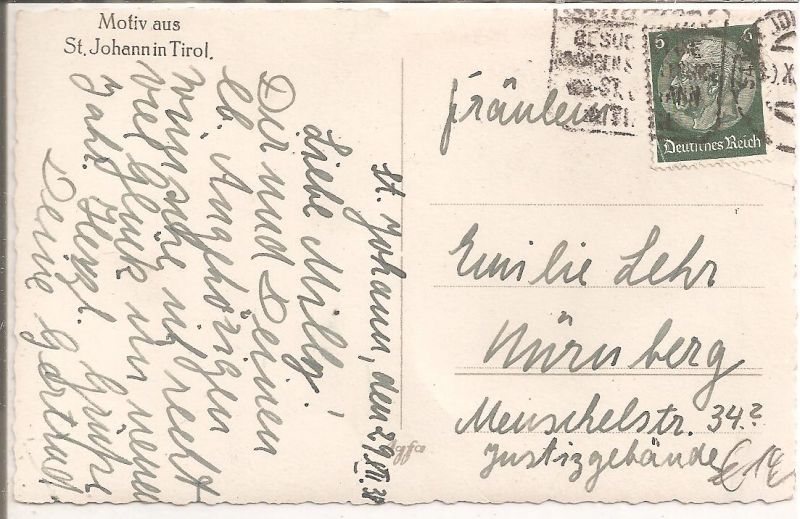 Motiv aus
St. Johann in Tirol.
St. Johann, den 29. XII. 38
Liebe Milly!
Dir und Deinen
lb. Angehörigen
wünsche ich recht
viel Glück im neuen
Jahr. Herzl. Grüße
Deine Gertrud.
6 6
Deutsches Reich
BESUCHT DIE
ST. JOHANN
Fräulein
Emilie Lehr
Nürnberg
Menschelstr. 34?
Justizgebäude
agfa